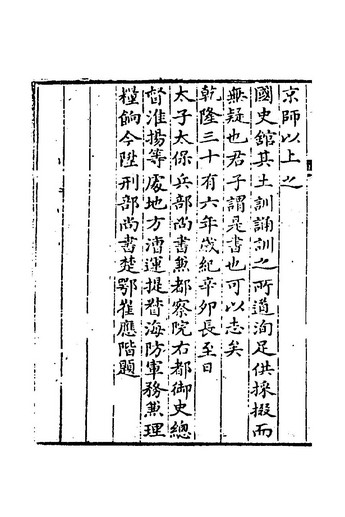 京師以上之
國史館其土訓誦訓之所道洵足供採掇而
無疑也君子謂是書也可以志矣
乾隆三十有六年歲紀辛卯長至日
太子太保兵部尚書兼都察院右都御史總
督淮揚等處地方漕運提督海防軍務兼理
糧餉今陞刑部尚書楚鄂崔應階題